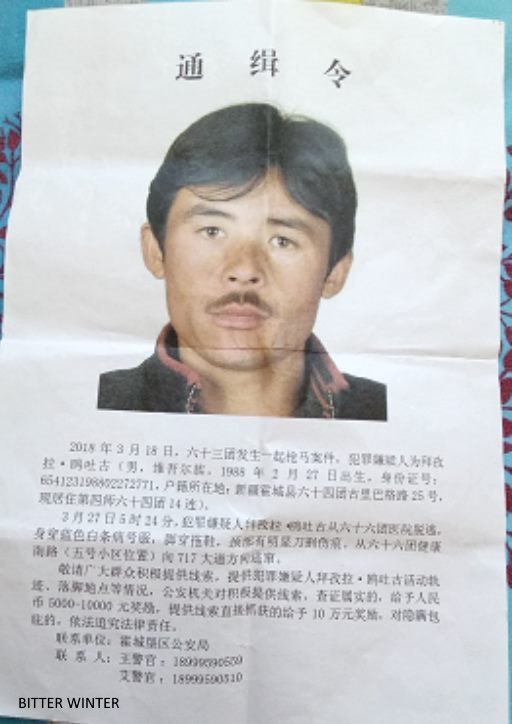 通缉令
2018 年 3 月 18 日，六十三团发生一起抢马案件，犯罪嫌疑人为拜孜
拉·鸥吐古（男，维吾尔族，1988 年 2 月 27 日出生，身份证号：
，户籍所在地：新疆霍城县六十四团古里巴格路 25 号，
现居住第四师六十四团 14 连）。
3 月 27 日 5 时 24 分，犯罪嫌疑人拜孜拉·鸥吐古从六十六团医院脱逃，
身穿蓝色白条病号服，脚穿拖鞋，颈部有明显刀割伤痕，从六十六团健康
南路（五号小区位置）向 717 大道方向逃窜。
敬请广大群众积极提供线索，提供犯罪嫌疑人拜孜拉·鸥吐古活动轨
迹、落脚地点等情况，公安机关对积极提供线索，查证属实的，给予人民
币 5000-10000 元奖励，提供线索直接抓获的给予 10 万元奖励，对隐瞒包
庇的，依法追究法律责任。
联系单位：霍城垦区公安局
联 系 人：王警官：18999590559
艾警官：18999590510
BITTER WINTER